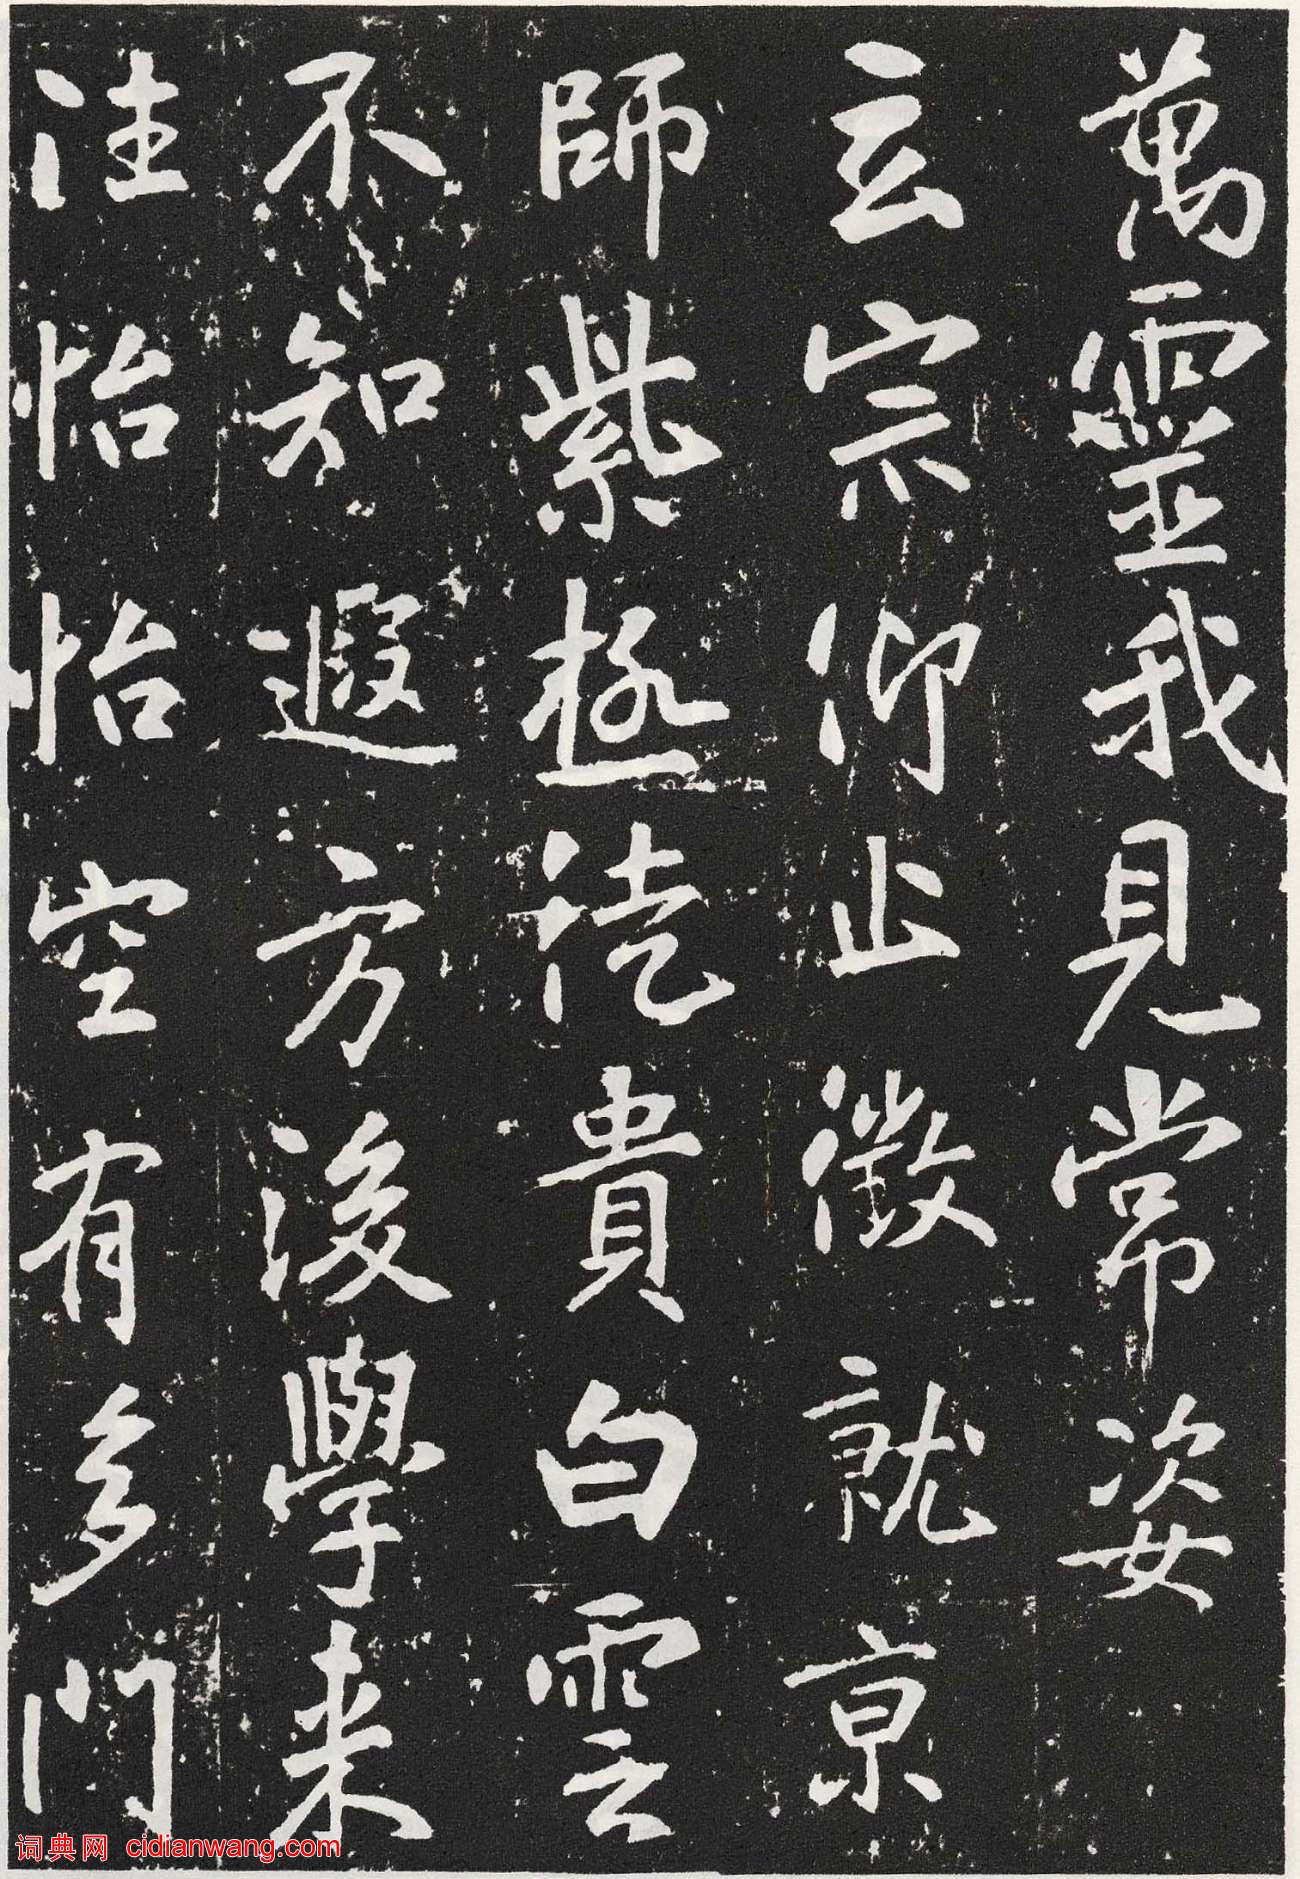 萬靈我見常姿
玄宗仰止徵就京
師紫極訖貴白雲
不知遐方後學来
往怡怡空有多門
词典网 cidianwang.com